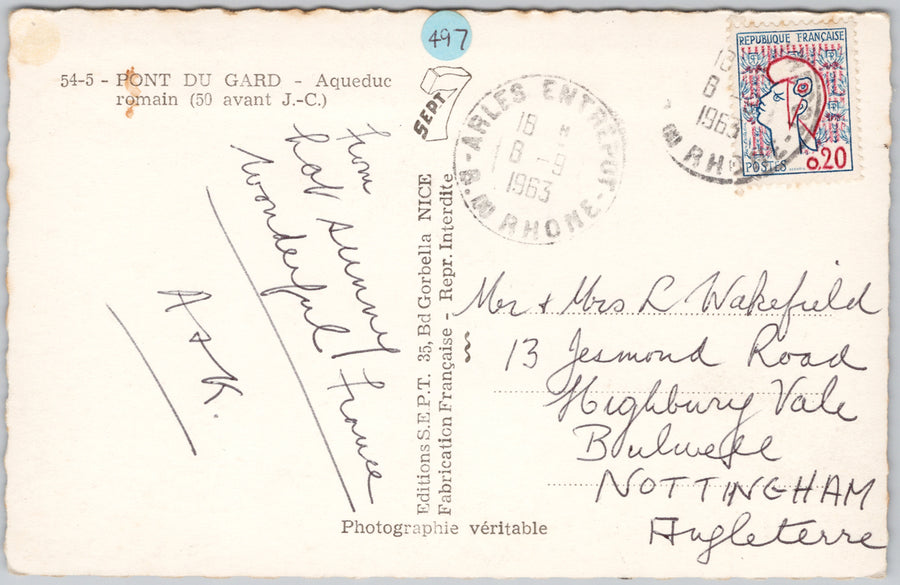 497
54-5 - PONT DU GARD - Aqueduc
romain (50 avant J.-C.)
SEPT
ARLES ENTREPOT
18 H
8 - 9
1963
B. DU RHONE
18
8
1963
DU RHONE
REPUBLIQUE FRANÇAISE
POSTES
0,20
from
hot sunny France
wonderful
A + K.
Editions S.E.P.T. 35, Bd Gorbella NICE
Fabrication Française - Repr. Interdite
Mr + Mrs L Wakefield
13 Jesmond Road
Highbury Vale
Bulwell
NOTTINGHAM
Angleterre
Photographie véritable